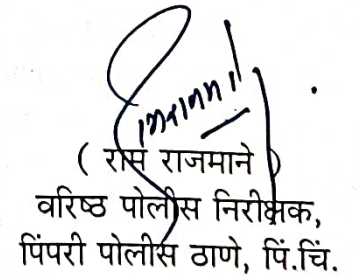 ( राम राजमाने )
वरिष्ठ पोलीस निरीक्षक,
पिंपरी पोलीस ठाणे, पिं.चिं.